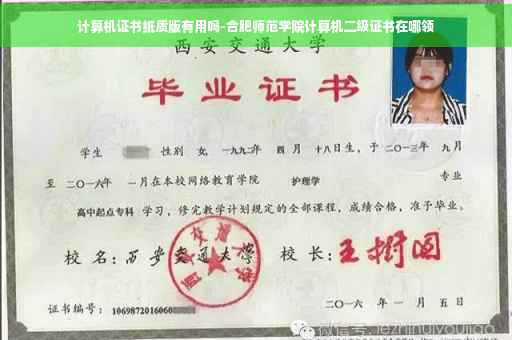 计算机证书纸质版有用吗-合肥师范学院计算机二级证书在哪领
西安交通大学
毕业证书
学生 性别 女, 一九九二年 四月 十八日生, 于 二〇一三年 九月
至 二〇一六年 一月在本校网络教育学院 护理学 专业
高中起点专科 学习, 修完教学计划规定的全部课程, 成绩合格, 准予毕业。
校名: 西安交通大学 校长: 王树国
证书编号: 1069872016060
二〇一六年 一月 五日
微信号: jezhihuiyoujiao